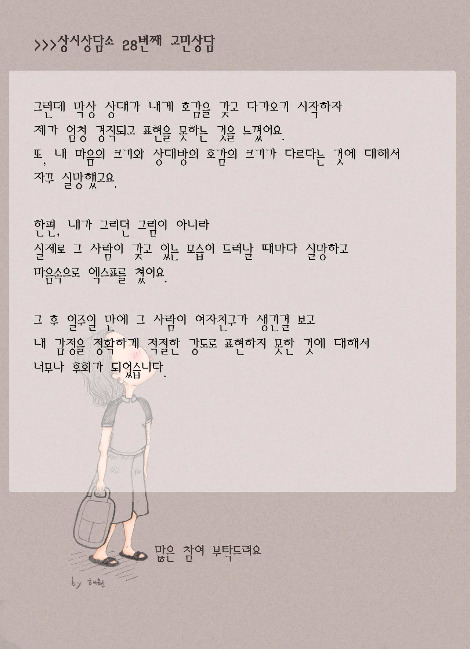 >>>상시상담소 28번째 고민상담
그런데 막상 상대가 내게 호감을 갖고 다가오기 시작하자
제가 엄청 경직되고 표현을 못하는 것을 느꼈어요.
또, 내 마음의 크기와 상대방의 호감의 크기가 다르다는 것에 대해서
자꾸 실망했고요.
한편, 내가 그리던 그림이 아니라
실제로 그 사람이 갖고 있는 모습이 드러날 때마다 실망하고
마음속으로 엑스표를 쳤어요.
그 후 일주일 만에 그 사람이 여자친구가 생긴걸 보고
내 감정을 정확하게 적절한 강도로 표현하지 못한 것에 대해서
너무나 후회가 되었습니다.
많은 참여 부탁드려요
by 해원